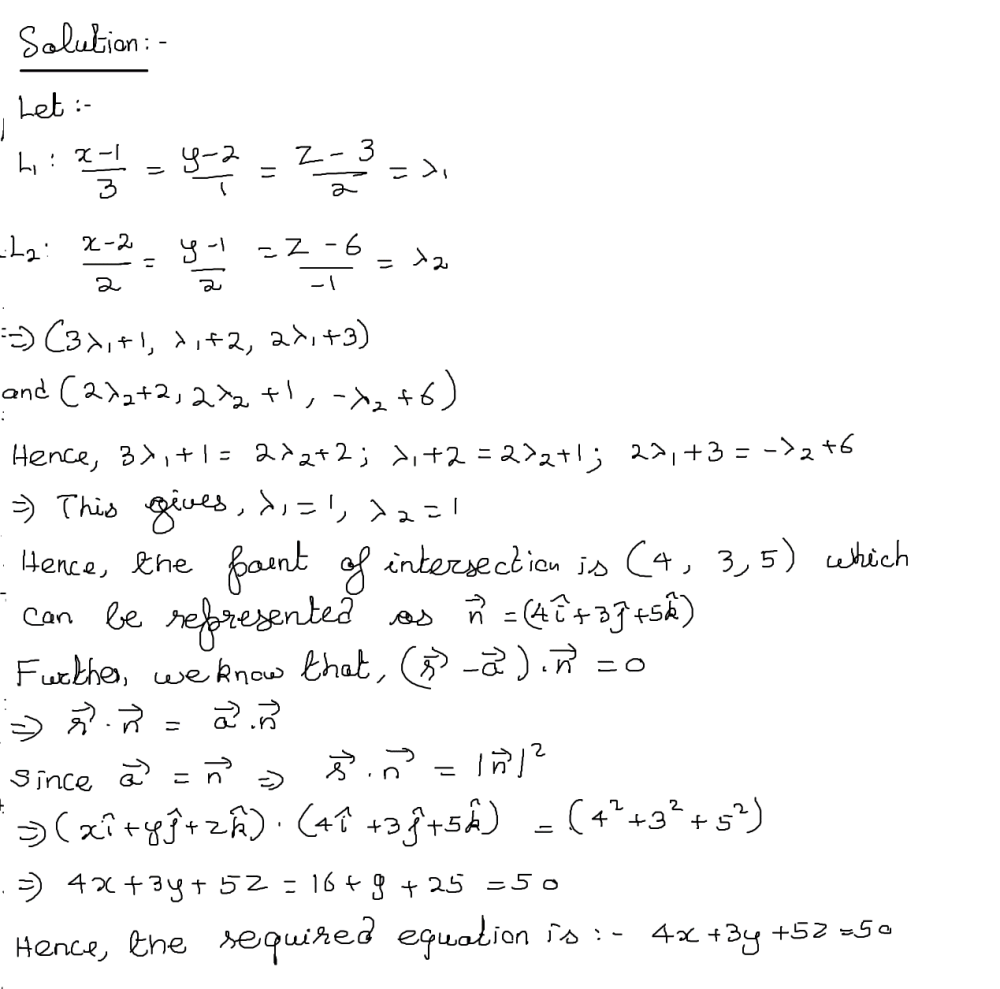 Solution:-
Let :-
L₁ : (x-1)/3 = (y-2)/1 = (z-3)/2 = λ₁
L₂: (x-2)/2 = (y-1)/2 = (z-6)/-1 = λ₂
⇒ (3λ₁+1, λ₁+2, 2λ₁+3)
and (2λ₂+2, 2λ₂+1, -λ₂+6)
Hence, 3λ₁+1 = 2λ₂+2; λ₁+2 = 2λ₂+1; 2λ₁+3 = -λ₂+6
⇒ This gives, λ₁=1, λ₂=1
Hence, the point of intersection is (4, 3, 5) which
can be represented as n⃗ = (4î+3ĵ+5k̂)
Further, we know that, (r⃗ - a⃗).n⃗ = 0
⇒ r⃗.n⃗ = a⃗.n⃗
since a⃗ = n⃗ ⇒ r⃗.n⃗ = |n⃗|²
⇒ (xî+yĵ+zk̂).(4î+3ĵ+5k̂) = (4²+3²+5²)
⇒ 4x+3y+5z = 16+9+25 = 50
Hence, the required equation is :- 4x+3y+5z=50